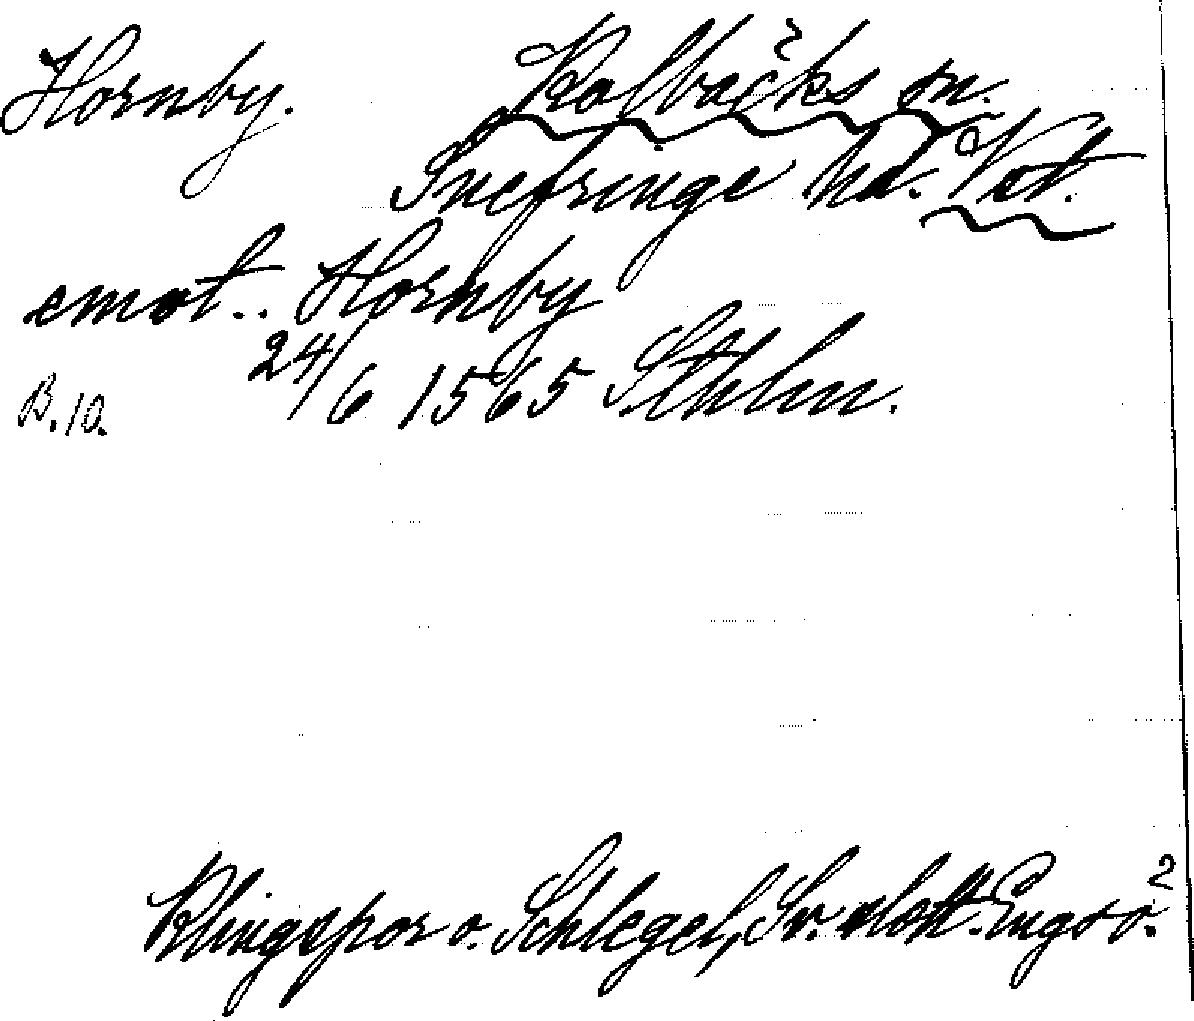 Hornby. Kolbäcks sn.
Snefringe hd. Vstm.
emot.. Hornby
24/6 1565 Sthlm.
B.10.
Klingspor o. Schlegel, Sv. slott. Engsö.²